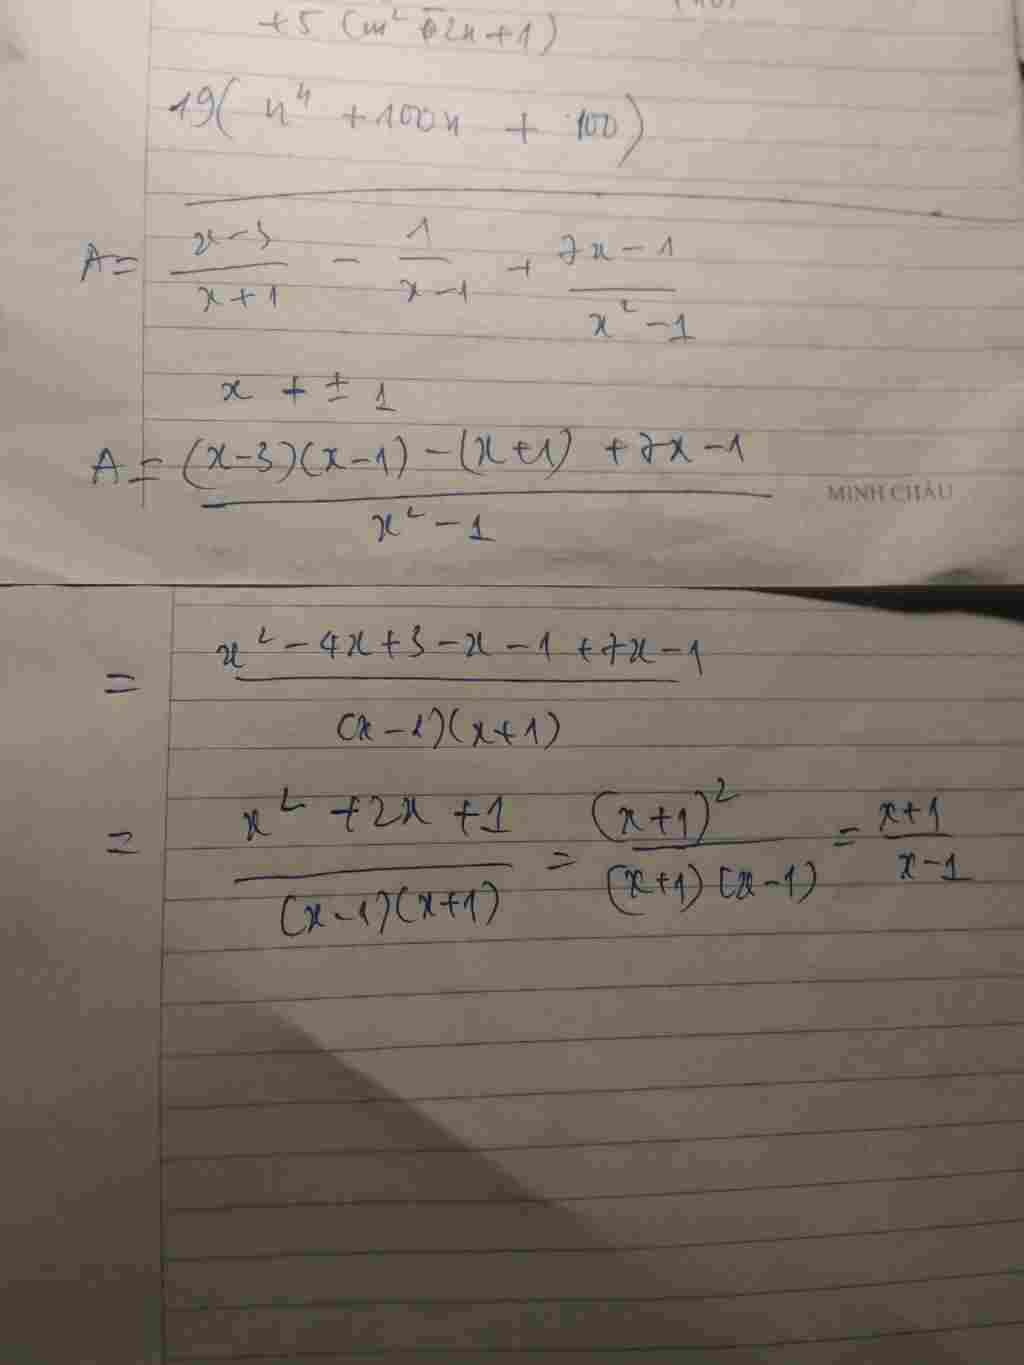 +5 (m² 2x+1)
19( x⁴ + 100x + 100)
A = (x-3)/(x+1) - 1/(x-1) + (7x-1)/(x²-1)
x + ± 1
A = ((x-3)(x-1) - (x+1) + 7x - 1)/(x²-1)
MINH CHÂU
= (x² - 4x + 3 - x - 1 + 7x - 1)/((x-1)(x+1))
= (x² + 2x + 1)/((x-1)(x+1)) = (x+1)²/((x+1)(x-1)) = (x+1)/(x-1)